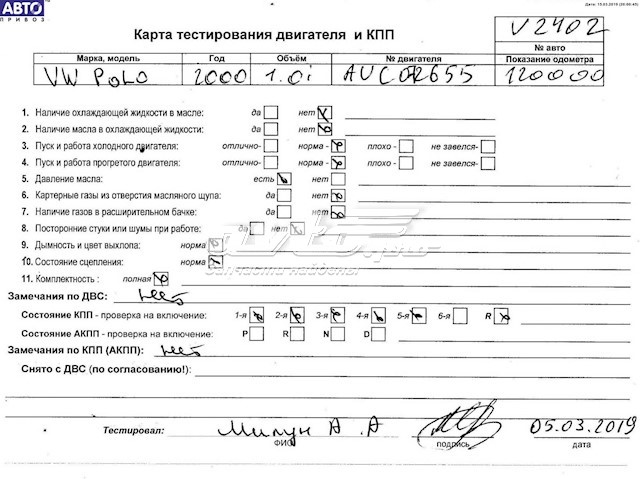 АВТО
ПРИВОЗ
Карта тестирования двигателя и КПП
V2402
№ авто
Марка, модель Год Объём № двигателя Показание одометра
VW POLO 2000 1.0i AUC02655 120000
1. Наличие охлаждающей жидкости в масле: да нет
2. Наличие масла в охлаждающей жидкости: да нет
3. Пуск и работа холодного двигателя: отлично- норма - плохо - не завелся-
4. Пуск и работа прогретого двигателя: отлично- норма - плохо - не завелся-
5. Давление масла: есть нет
6. Картерные газы из отверстия масляного щупа: да нет
7. Наличие газов в расширительном бачке: да нет
8. Посторонние стуки или шумы при работе: да нет
9. Дымность и цвет выхлопа: норма
10. Состояние сцепления: норма
11. Комплектность : полная
Замечания по ДВС: нет
Состояние КПП - проверка на включение: 1-я 2-я 3-я 4-я 5-я 6-я R
Состояние АКПП - проверка на включение: P R N D
Замечания по КПП (АКПП): нет
Снято с ДВС (по согласованию!):
Тестировал: А.А 05.03.2019
ФИО подпись дата